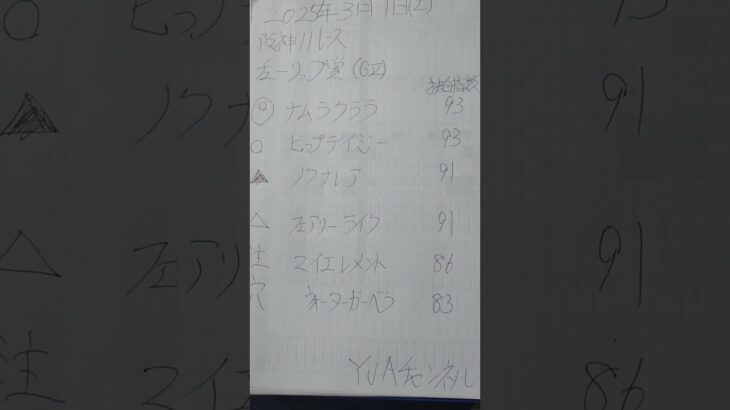 2025年3月1日(土)
阪神11レース
チューリップ賞(GII)
独自指数
◎ ナムラクララ 93
○ ビップデイジー 93
▲ ノクナレア 91
△ フェアリーライク 91
注 マイエレメント 86
穴 ネーブルオレンジ 83
YUAチャンネル